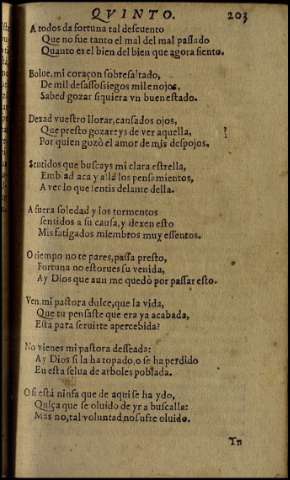 QVINTO. 203
A todos da fortuna tal descuento
Que no fue tanto el mal del mal passado
Quanto es el bien del bien que agora siento.
Bolue, mi coraçon sobresaltado,
De mil desassossiegos mil enojos,
Sabed gozar siquiera vn buen estado.
Dexad vuestro llorar, cansados ojos,
Que presto gozareys de ver aquella,
Por quien gozò el amor de mis despojos.
Sentidos que buscays mi clara estrella,
Embiad aca y allá los pensamientos,
A ver lo que sentis delante della.
A fuera soledad y los tormentos
sentidos a su causa, y dexen esto
Mis fatigados miembros muy essentos.
O tiempo no te pares, passa presto,
Fortuna no estorues su venida,
Ay Dios que aun me quedò por passar esto.
Ven mi pastora dulce, que la vida,
Que tu pensaste que era ya acabada,
Esta para seruirte apercebida?
No vienes mi pastora desseada:
Ay Dios si la ha topado, o se ha perdido
En esta selua de arboles poblada.
O si está ninfa que de aqui se ha ydo,
Quiça que se oluido de yr a buscalla:
Mas no, tal voluntad no sufre oluido.
Tn